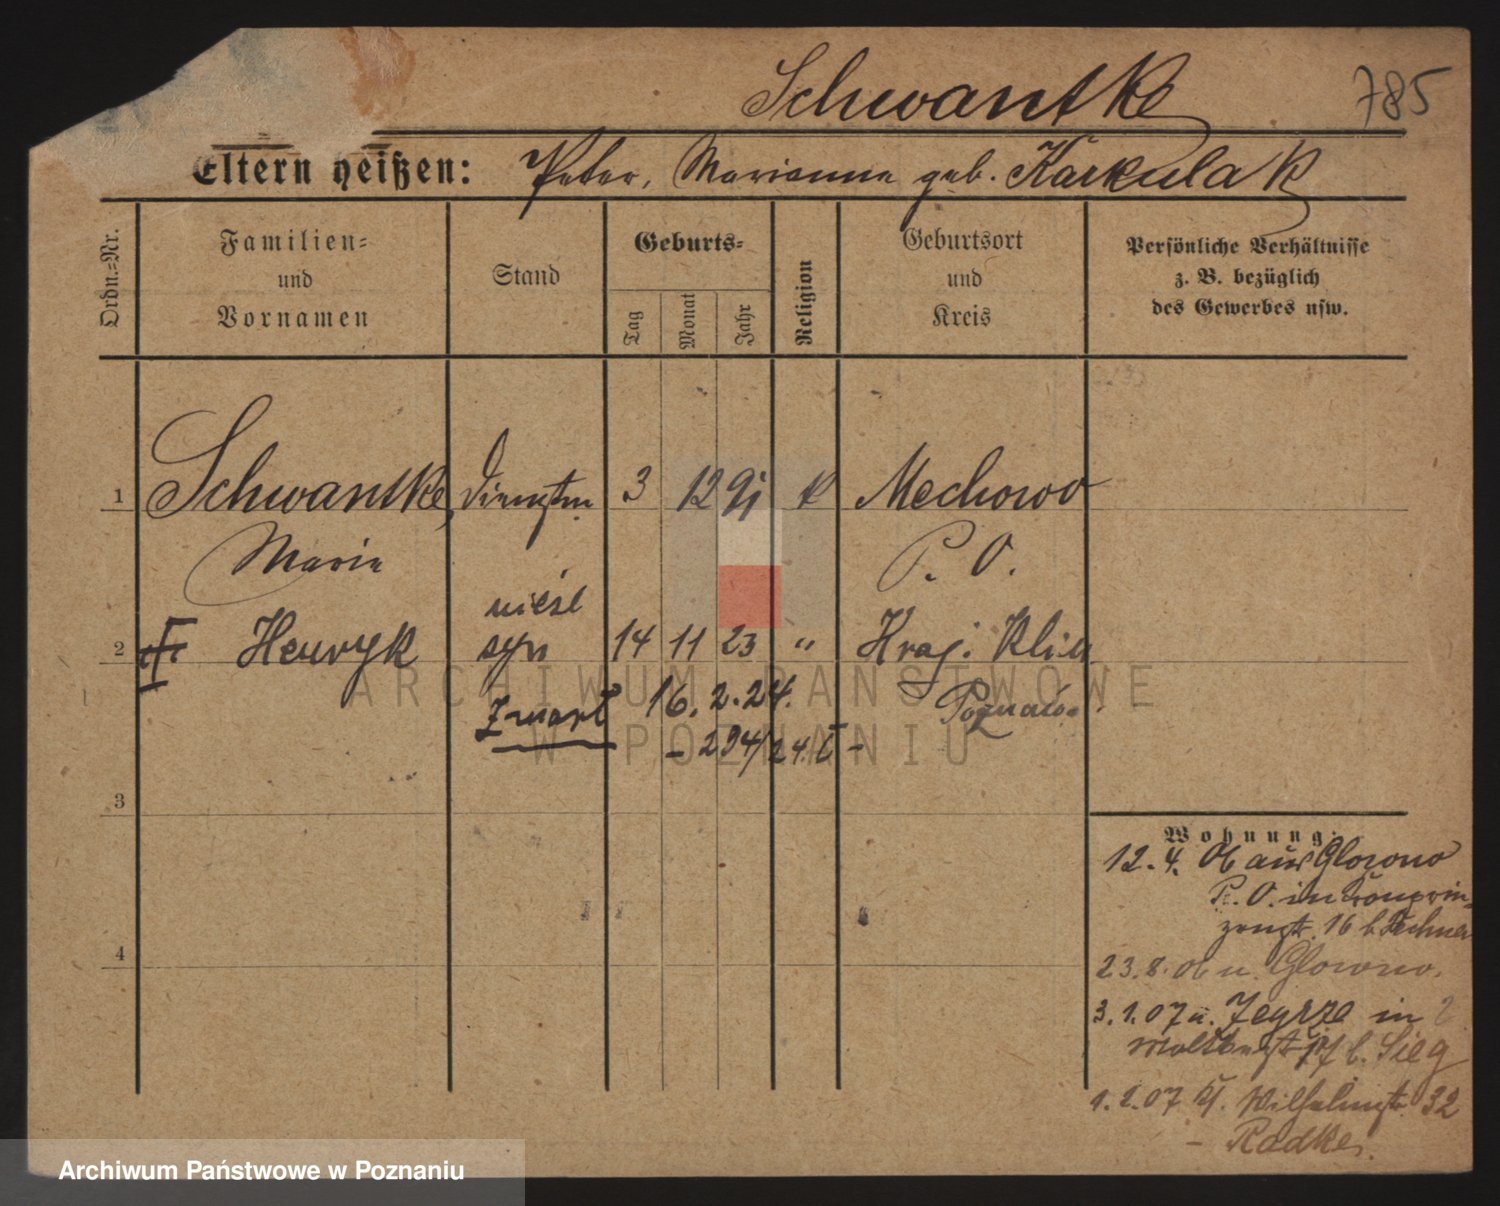 Schwantke
785
Eltern heißen: Peter, Marianna geb. Karkulak
Ordn.-Nr.
Familien-
und
Vornamen
Stand
Geburts-
Tag
Monat
Jahr
Religion
Geburtsort
und
Kreis
Persönliche Verhältnisse
z. B. bezüglich
des Gewerbes usw.
1 Schwantke, Dienstm. 3 12 91 k Mechowo
Maria P. O.
nieśl
2 Henryk syn 14 11 23 " Kraj. Klin
zmarł 16. 2. 24. Poznań
- 294/24. I -
3
4
Wohnung:
12. 4. 06 aus Glowno
P. O. in Kronprin-
zenstr. 16 b.
23. 8. 06 n. Glowno.
3. 1. 07 v. Zegrze in
Moltkestr. b. Sieg
1. 2. 07 Wilhelmstr. 32
- Radke.
ARCHIWUM PAŃSTWOWE
W POZNANIU
Archiwum Państwowe w Poznaniu